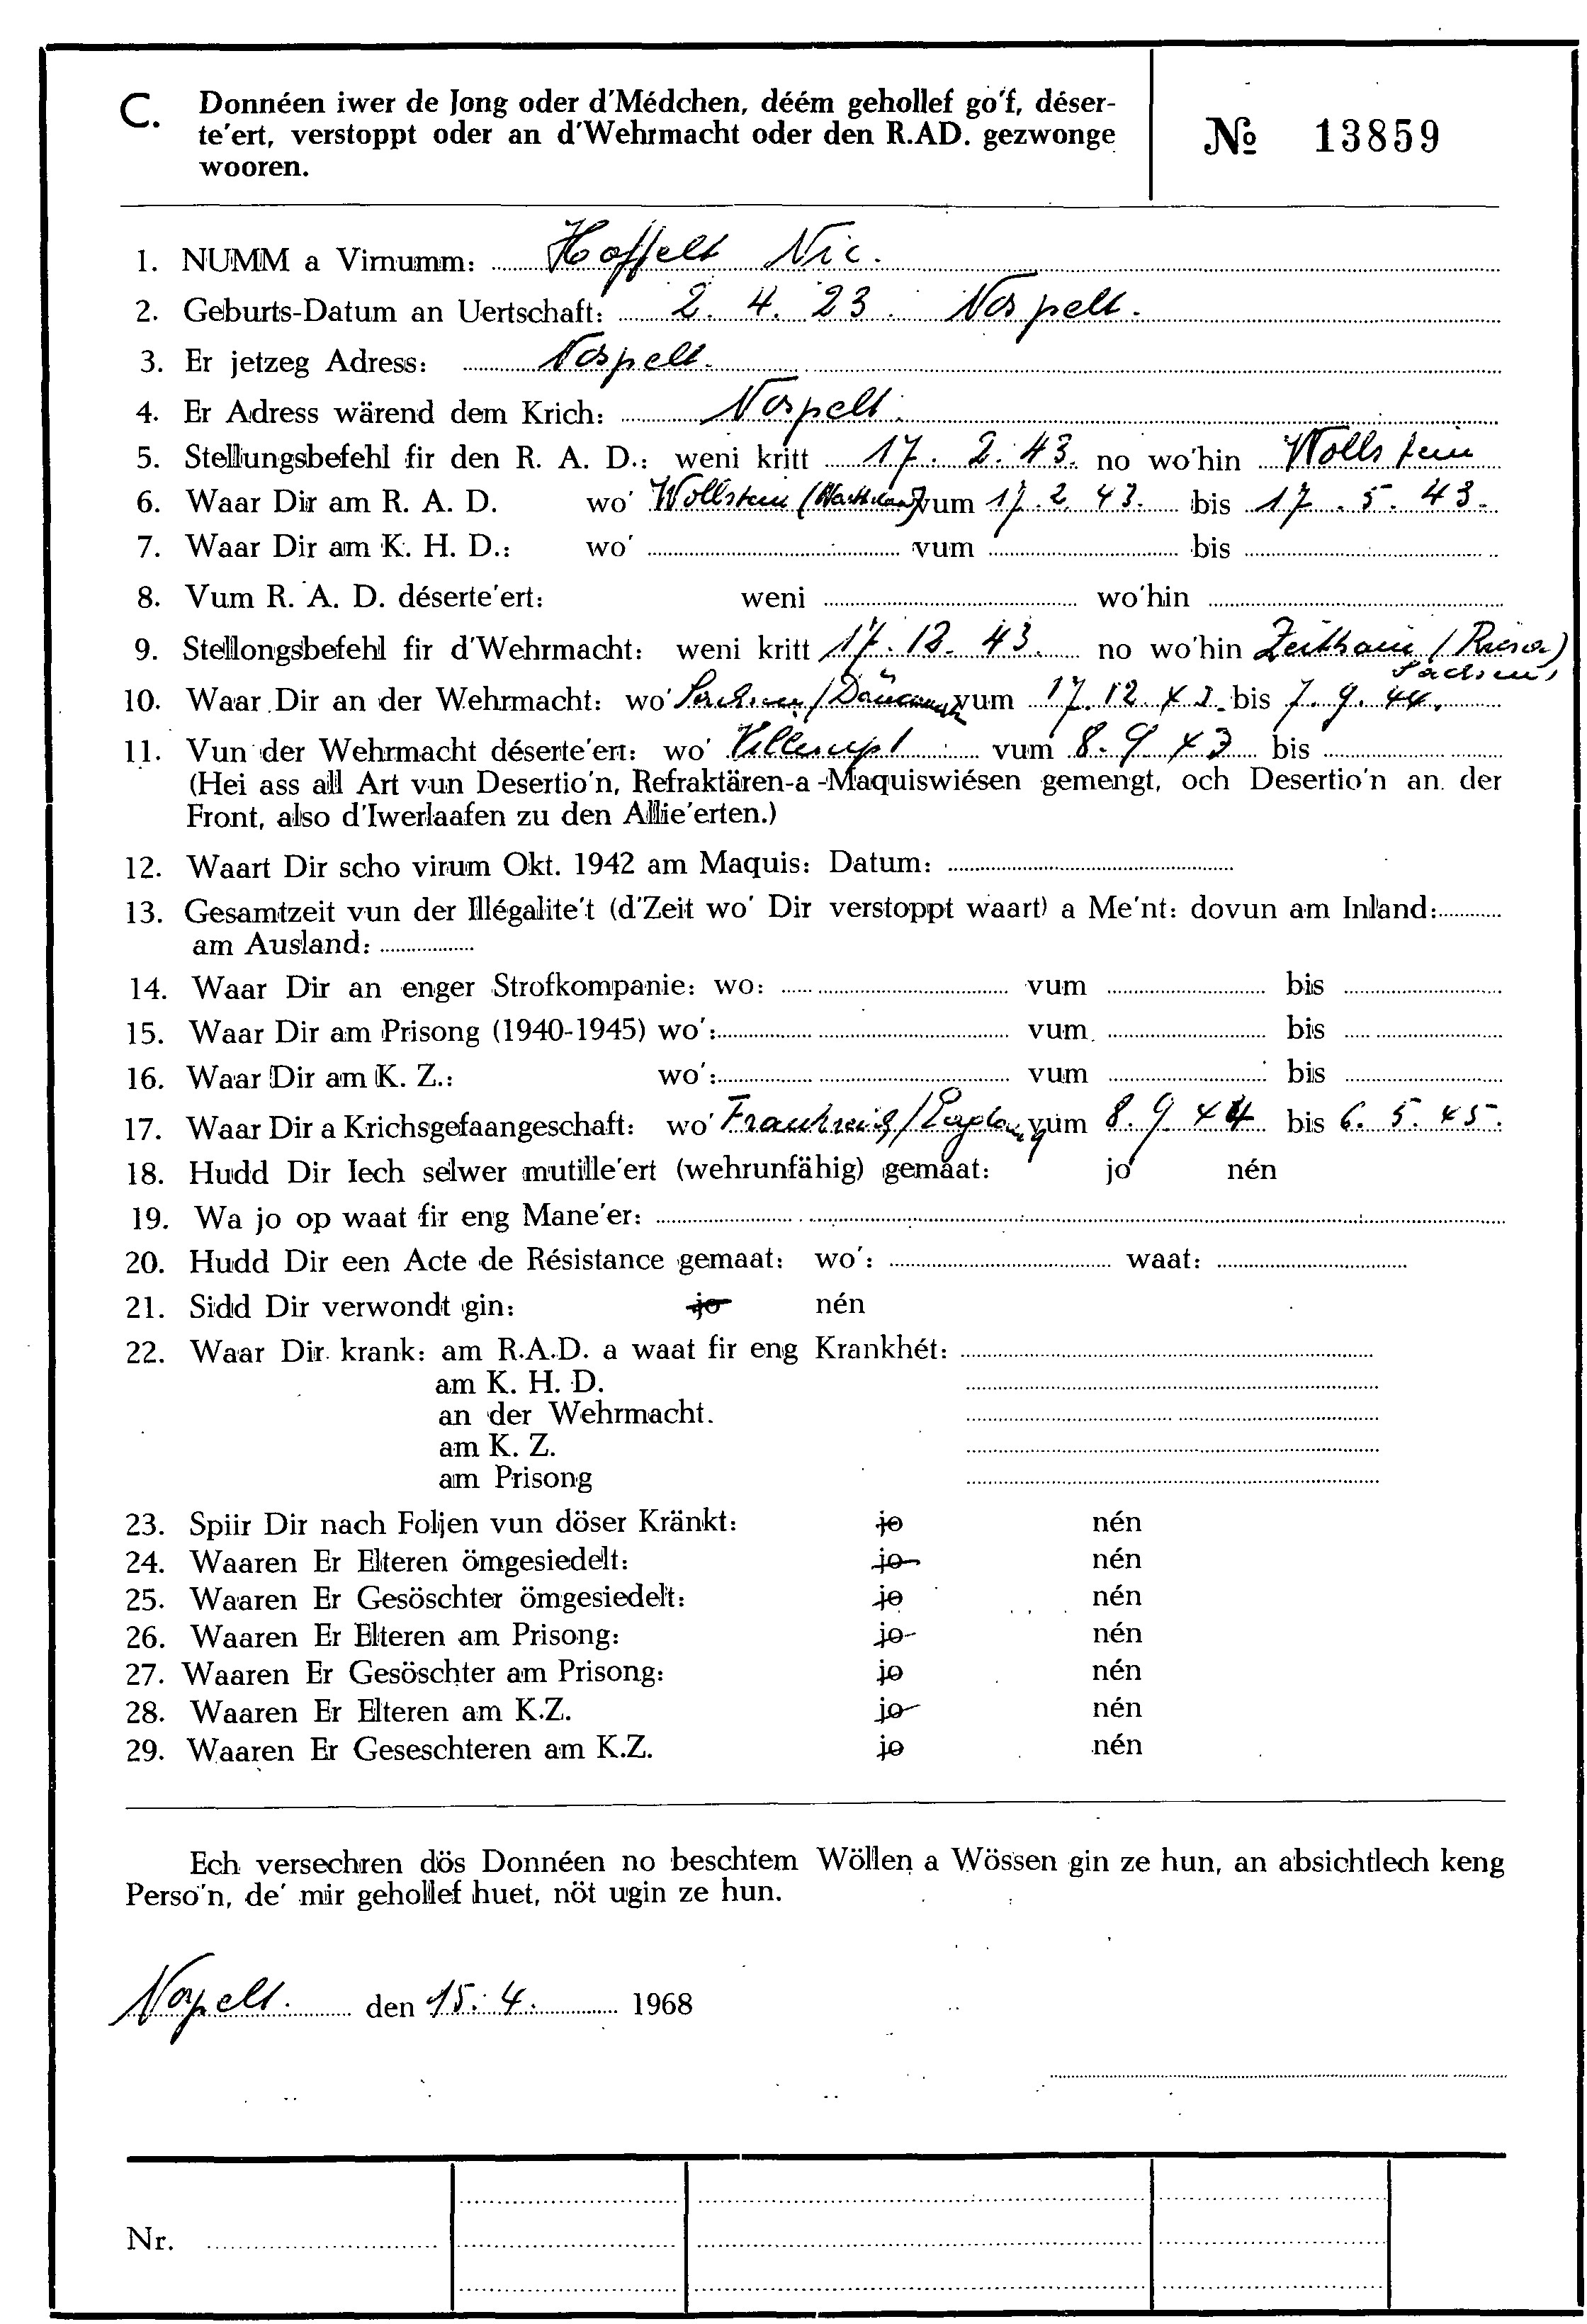 C. Donnéen iwer de Jong oder d'Médchen, déém gehollef go'f, déser-
te'ert, verstoppt oder an d'Wehrmacht oder den R.AD. gezwonge
wooren.
№ 13859
1. NUMM a Virnumm: Hoffelt Nic.
2. Geburts-Datum an Uertschaft: 2. 4. 23. Nospelt.
3. Er jetzeg Adress: Nospelt.
4. Er Adress wärend dem Krich: Nospelt.
5. Stellungsbefehl fir den R. A. D.: weni kritt 17. 2. 43. no wo'hin Wollstein
6. Waar Dir am R. A. D. wo' Wollstein (Warthegau) vum 17. 2. 43. bis 17. 5. 43.
7. Waar Dir am K. H. D.: wo' vum bis
8. Vum R. A. D. déserte'ert: weni wo'hin
9. Stellongsbefehl fir d'Wehrmacht: weni kritt 17. 12. 43. no wo'hin Zeithain / (Riesa)
Sachsen
10. Waar Dir an der Wehrmacht: wo' Sachsen / Dänemark vum 17. 12 43. bis 7. 9. 44.
11. Vun der Wehrmacht déserte'ert: wo' Villerupt vum 8. 9 43 bis
(Hei ass all Art vun Desertio'n, Refraktären-a -Maquiswiésen gemengt, och Desertio'n an der
Front, also d'Iwerlaafen zu den Allie'erten.)
12. Waart Dir scho virum Okt. 1942 am Maquis: Datum:
13. Gesamtzeit vun der Illégalite't (d'Zeit wo' Dir verstoppt waart) a Me'nt: dovun am Inland:
am Ausland:
14. Waar Dir an enger Strofkompanie: wo: vum bis
15. Waar Dir am Prisong (1940-1945) wo': vum bis
16. Waar Dir am K. Z.: wo': vum bis
17. Waar Dir a Krichsgefaangeschaft: wo' Frankreich / vum 8. 9. 44 bis 6. 5. 45.
18. Hudd Dir Iech selwer mutille'ert (wehrunfähig) gemaat: jo nén
19. Wa jo op waat fir eng Mane'er:
20. Hudd Dir een Acte de Résistance gemaat: wo': waat:
21. Sidd Dir verwondt gin: jo nén
22. Waar Dir krank: am R.A.D. a waat fir eng Krankhét:
am K. H. D.
an der Wehrmacht.
am K. Z.
am Prisong
23. Spiir Dir nach Foljen vun döser Kränkt: jo nén
24. Waaren Er Elteren ömgesiedelt: jo nén
25. Waaren Er Gesöschter ömgesiedelt: jo nén
26. Waaren Er Elteren am Prisong: jo nén
27. Waaren Er Gesöschter am Prisong: jo nén
28. Waaren Er Elteren am K.Z. jo nén
29. Waaren Er Geseschteren am K.Z. jo nén
Ech versechren dös Donnéen no beschtem Wöllen a Wössen gin ze hun, an absichtlech keng
Perso'n, de' mir gehollef huet, nöt ugin ze hun.
Nospelt. den 15. 4. 1968
Nr.